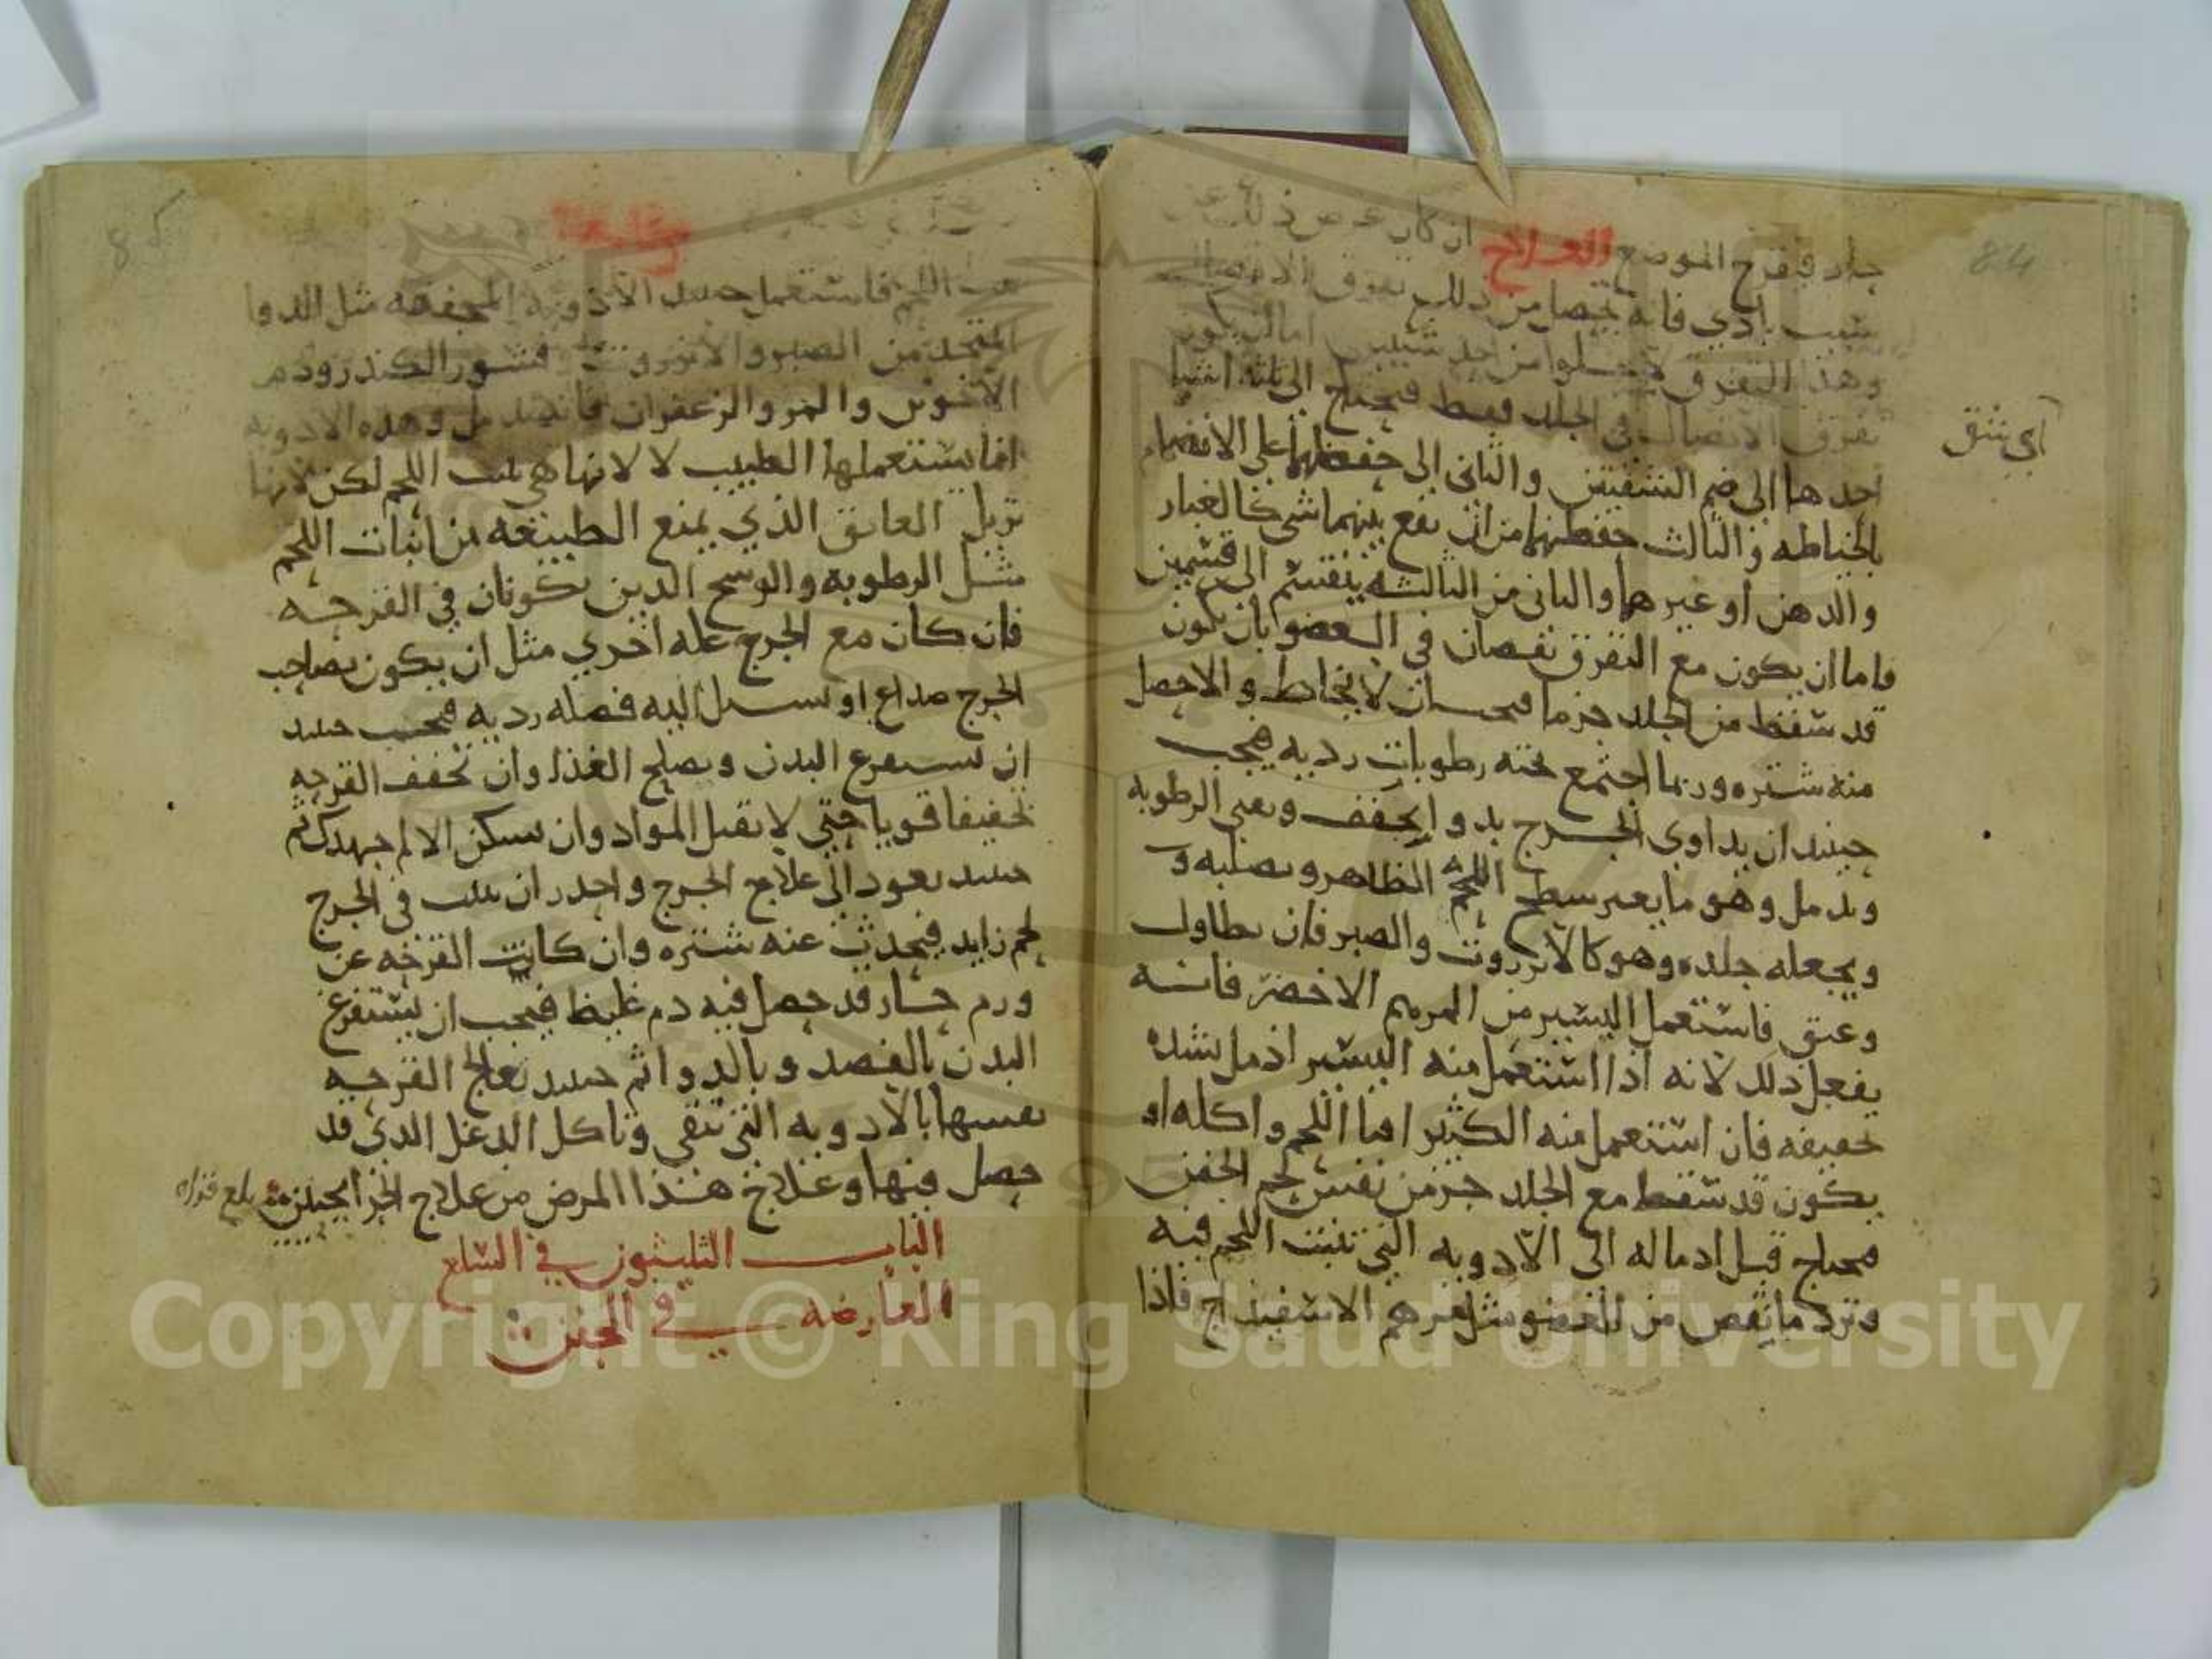 84
حاد فيقرح الموضع العلاج ان كان عرض ذلك عن
سبب بادي فانه يحصل من ذلك تفرق الاتصال
وهذا التفرق لا يخلوا من احد شيئين اما ان يكون
تفرق الاتصال في الجلد فقط فيحتاج الى ثلثه اشيا
اي شق
احدها الى ضم الشفتين والثاني الى حفظهما على الانضمام
بالخياطه والثالث حفظهما من ان يقع بينهما شي كالغبار
والدهن او غيرهما والثاني من الثالثه ينقسم الى قسمين
فاما ان يكون مع التفرق نقصان في العضو بان يكون
قد سقط من الجلد جزما فيجب ان لا يخاط والا حصل
منه شتره وربما اجتمع تحته رطوبات رديه فيجب
حينيد ان يداوي الجرح بدوا يجفف ويفني الرطوبه
ويدمل وهو ما يغير سطح اللحم الظاهر ويصلبه و
ويجعله جلده وهو كالانزروت والصبر فان تطاول
وعتق فاستعمل اليسير من المرهم الاخضر فانه
يفعل ذلك لانه اذا استعمل منه اليسير ادمل بشده
تجفيفه فان استعمل منه الكثير افنا اللحم واكله او
يكون قد سقط مع الجلد جز من نفس لحم الجفن
فيحتاج قبل ادماله الى الادويه التي تنبت اللحم فيه
وترد ما نقص من العضو مثل مرهم الاسفيداج فاذا
85
نبت اللحم فاستعمل حينيد الادويه المجففه مثل الدوا
المتخذ من الصبر والانزروت وقشور الكندر ودم
الاخوين والمر والزعفران فانه يدمل وهذه الادويه
انما يستعملها الطبيب لا لانها هي تنبت اللحم لكن لانها
تزيل العايق الذي يمنع الطبيعه من انبات اللحم
مثل الرطوبه والوسخ الدين يكونان في القرحه
فان كان مع الجرح عله اخري مثل ان يكون بصاحب
الجرح صداع او تسيل اليه فضله رديه فيجب حينيد
ان تستفرغ البدن وتصلح الغذا وان تجفف القرحه
تجفيفا قويا حتي لا تقبل المواد وان تسكن الالم جهدك ثم
حينيد تعود الى علاج الجرح واحدر ان ينبت في الجرح
لحم زايد فيحدث عنه شتره وان كانت القرحه عن
ورم حار قد حصل فيه دم غليظ فيجب ان تستفرغ
البدن بالفصد وبالدوا ثم حينيد تعالج القرحه
نفسها بالادويه التي تنقي وتاكل الدغل الدي قد
حصل فيها وعلاج هذا المرض من علاج الجراىحيين بلغ قراه
الباب الثليثون في السلع
العارضه في الجفن
Copyright © King Saud University